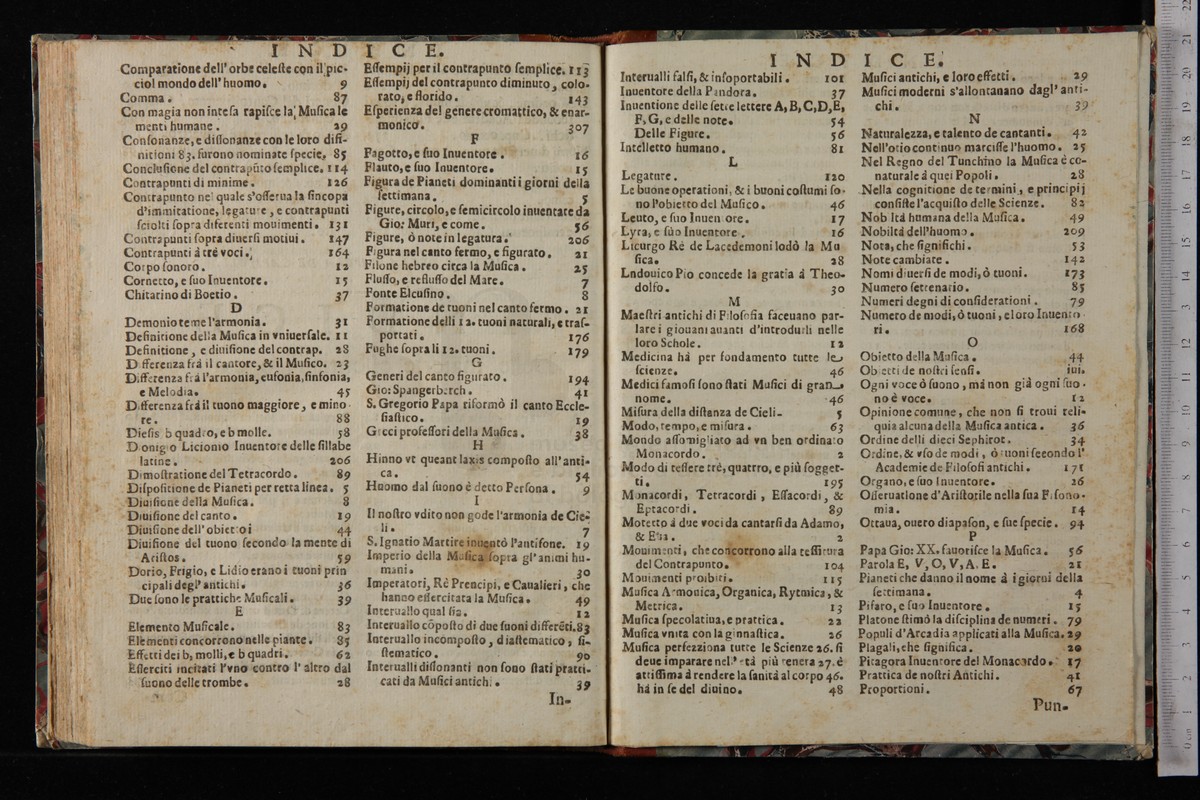 INDICE.
Comparatione dell' orbe celeſte con il pic-
ciol mondo dell' huomo. 9
Comma. 87
Con magia non inteſa rapiſce la Muſica le
menti humane. 29
Conſonanze, e diſſonanze con le loro difi-
nitioni 83. furono nominate ſpecie. 85
Concluſione del contrapũto ſemplice. 114
Contrapunti di minime. 126
Contrapunto nel quale s'oſſerua la ſincopa
d'immitatione, legature, e contrapunti
ſciolti ſopra diferenti mouimenti. 131
Contrapunti ſopra diuerſi motiui. 147
Contrapunti à trè voci. 164
Corpo ſonoro. 12
Cornetto, e ſuo Inuentore. 15
Chitarino di Boetio. 37
D
Demonio teme l'armonia. 31
Definitione della Muſica in vniuerſale. 11
Definitione, e diuiſione del contrap. 28
Differenza frà il cantore, & il Muſico. 23
Differenza frà l'armonia, eufonia, ſinfonia,
e Melodia. 45
Differenza frà il tuono maggiore, e mino-
re. 88
Dieſis b quadro, e b molle. 58
Dionigio Licionio Inuentore delle ſillabe
latine. 206
Dimoſtratione del Tetracordo. 89
Diſpoſitione de Pianeti per retta linea. 5
Diuiſione della Muſica. 8
Diuiſione del canto. 19
Diuiſione dell'obietto i 44
Diuiſione del tuono ſecondo la mente di
Ariſtos. 59
Dorio, Frigio, e Lidio erano i tuoni prin
cipali degl'antichi. 36
Due ſono le prattiche Muſicali. 39
E
Elemento Muſicale. 83
Elementi concorrono nelle piante. 85
Effetti dei b, molli, e b quadri. 62
Eſſerciti incitati l'vno contro l'altro dal
ſuono delle trombe. 28
Eſſempij per il contrapunto ſemplice. 113
Eſſempij del contrapunto diminuto, colo-
rato, e florido. 143
Eſperienza del genere cromattico, & enar-
monico. 307
F
Fagotto, e ſuo Inuentore. 16
Flauto, e ſuo Inuentore. 15
Figura de Pianeti dominanti i giorni della
ſettimana. 5
Figure, circolo, e ſemicircolo inuentate da
Gio: Muri, e come. 56
Figure, ò note in legatura. 206
Figura nel canto fermo, e figurato. 21
Filone hebreo circa la Muſica. 25
Fluſſo, e refluſſo del Mare. 7
Fonte Elcuſino. 8
Formatione de tuoni nel canto fermo. 21
Formatione delli 12. tuoni naturali, e traſ-
portati. 176
Fughe ſopra li 12. tuoni. 179
G
Generi del canto figurato. 194
Gio: Spangerberch. 41
S. Gregorio Papa riformò il canto Eccle-
ſiaſtico. 19
Greci profeſſori della Muſica. 38
H
Hinno vt queant laxis compoſto all'anti-
ca. 54
Huomo dal ſuono è detto Perſona. 9
I
Il noſtro vdito non gode l'armonia de Cie-
li. 7
S. Ignatio Martire inuentò l'antifone. 19
Imperio della Muſica ſopra gl'animi hu-
mani. 30
Imperatori, Rè Prencipi, e Caualieri, che
hanno eſſercitata la Muſica. 49
Interuallo qual ſia. 12
Interuallo cõpoſto di due ſuoni differẽti. 83
Interuallo incompoſto, diaſtematico, ſi-
ſtematico. 90
Interualli diſſonanti non ſono ſtati pratti-
cati da Muſici antichi. 39
In-
INDICE.
Interualli falſi, & inſoportabili. 101
Inuentore della Pandora. 37
Inuentione delle ſette lettere A, B, C, D, E,
F, G, e delle note. 54
Delle Figure. 56
Intelletto humano. 81
L
Legature. 120
Le buone operationi, & i buoni coſtumi ſo-
no l'obietto del Muſico. 46
Leuto, e ſuo Inuentore. 17
Lyra, e ſuo Inuentore. 16
Licurgo Rè de Lacedemoni lodò la Mu
ſica. 28
Lndouico Pio concede la gratia à Theo-
dolfo. 30
M
Maeſtri antichi di Filoſofia faceuano par-
lare i giouani auanti d'introdurli nelle
loro Schole. 12
Medicina hà per fondamento tutte le
ſcienze. 46
Medici famoſi ſono ſtati Muſici di gran
nome. 46
Miſura della diſtanza de Cieli. 5
Modo, tempo, e miſura. 63
Mondo aſſomigliato ad vn ben ordinato
Monacordo. 2
Modo di teſſere trè, quattro, e più ſogget-
ti. 195
Monacordi, Tetracordi, Eſſacordi, &
Eptacordi. 89
Motetto à due voci da cantarſi da Adamo,
& Eua. 2
Mouimenti, che concorrono alla teſſitura
del Contrapunto. 104
Mouimenti proibiti. 115
Muſica Armonica, Organica, Rytmica, &
Metrica. 13
Muſica ſpecolatiua, e prattica. 22
Muſica vnita con la ginnaſtica. 26
Muſica perfezziona tutte le Scienze 26. ſi
deue imparare nell' età più tenera 27. è
attiſſima à rendere la ſanità al corpo 46.
hà in ſe del diuino. 48
Muſici antichi, e loro effetti. 29
Muſici moderni s'allontanano dagl' anti-
chi. 39
N
Naturalezza, e talento de cantanti. 42
Nell'otio continuo marciſſe l'huomo. 25
Nel Regno del Tunchino la Muſica è co-
naturale à quei Popoli. 28
Nella cognitione de termini, e principij
conſiſte l'acquiſto delle Scienze. 82
Nobiltà humana della Muſica. 49
Nobiltà dell'huomo. 209
Nota, che ſignifichi. 53
Note cambiate. 142
Nomi diuerſi de modi, ò tuoni. 173
Numero ſettenario. 85
Numeri degni di conſiderationi. 79
Numero de modi, ò tuoni, e loro Inuento
ri. 168
O
Obietto della Muſica. 44
Obietti de noſtri ſenſi. iui.
Ogni voce è ſuono, mà non già ogni ſuo-
no è voce. 12
Opinione comune, che non ſi troui reli-
quia alcuna della Muſica antica. 36
Ordine delli dieci Sephirot. 34
Ordine, & vſo de modi, ò tuoni ſecondo l'
Academie de Filoſofi antichi. 171
Organo, e ſuo Inuentore. 26
Oſſeruatione d'Ariſtotile nella ſua Fiſono-
mia. 14
Ottaua, ouero diapaſon, e ſue ſpecie. 94
P
Papa Gio: XX. fauoriſce la Muſica. 56
Parola E, V, O, V, A, E. 21
Pianeti che danno il nome à i giorni della
ſettimana. 4
Pifaro, e ſuo Inuentore. 15
Platone ſtimò la diſciplina de numeri. 79
Populi d'Arcadia applicati alla Muſica. 29
Plagali, che ſignifica. 20
Pitagora Inuentore del Monacordo. 17
Prattica de noſtri Antichi. 41
Proportioni. 67
Pun-